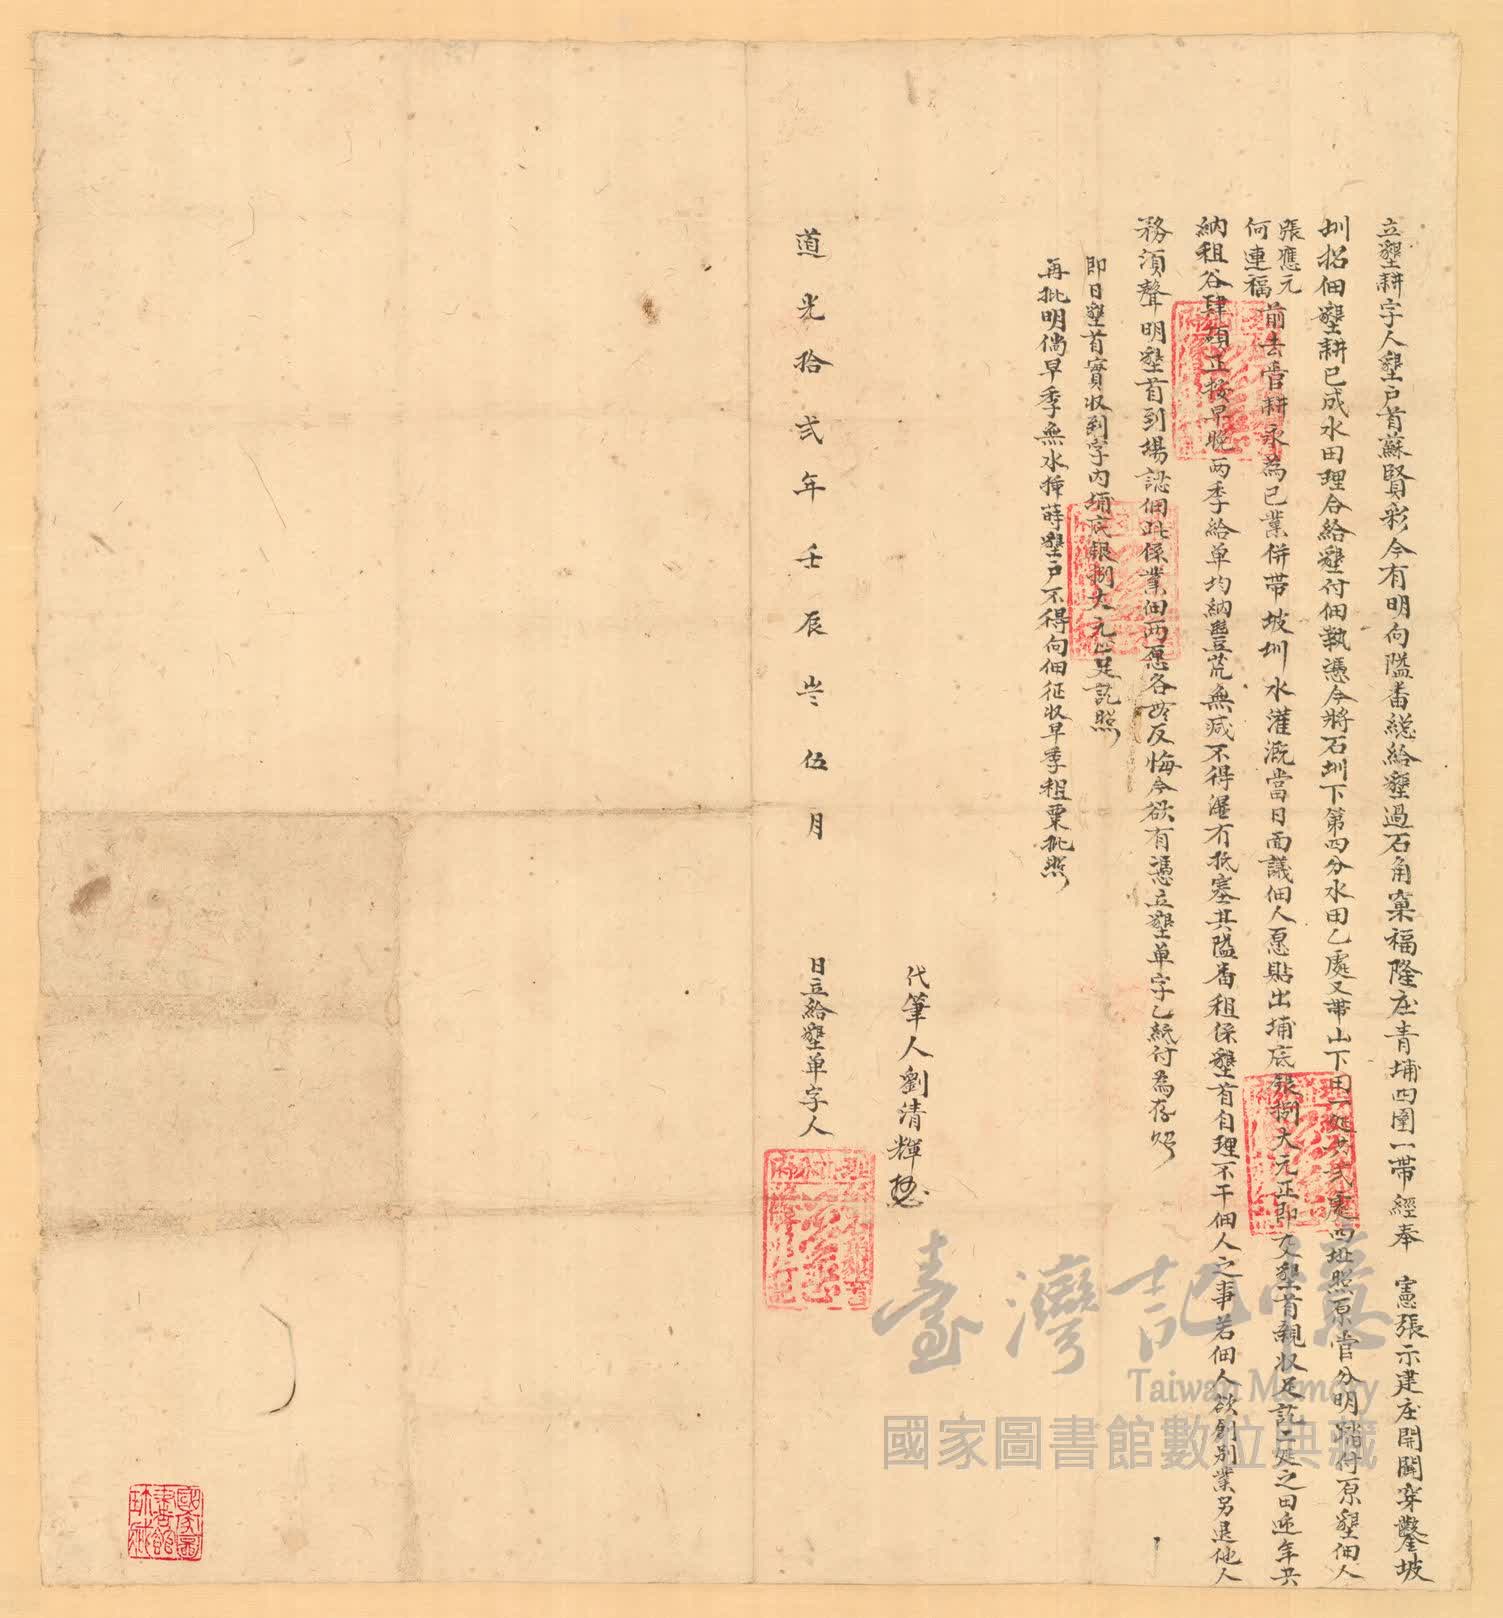 立墾耕字人墾戶首蘇賢彩今有明向隘番総給墾過石角窠福隆庄青埔四圍一帶經奉　憲張示建庄開闢穿鑿坡
圳招佃墾耕已成水田理合給墾付佃執憑今將石圳下第四分水田乙處又帶山下田一處共弍處四址照原管分明踏付原墾佃人
張應元
何連福
前去管耕永為己業併帶坡圳水灌溉當日面議佃人愿貼出埔底銀捌大元正即交墾首親收足訖二處之田逓年共
納租谷肆碩正按早晚两季給单均納豐荒無减不得濕冇抵塞其隘番租係墾首自理不干佃人之事若佃人欲創别業另退他人
務須聲明墾首到場認佃此係業佃两愿各無反悔今欲有憑立墾单字乙紙付為存炤
即日墾首實收到字內埔底銀捌大元正足訖照
再批明倘早季無水插蒔墾戶不得向佃征收早季租粟批照
代筆人劉清輝
道光拾弍年壬辰歲伍月
日立給墾单字人
臺灣記憶
Taiwan Memory
國家圖書館數位典藏